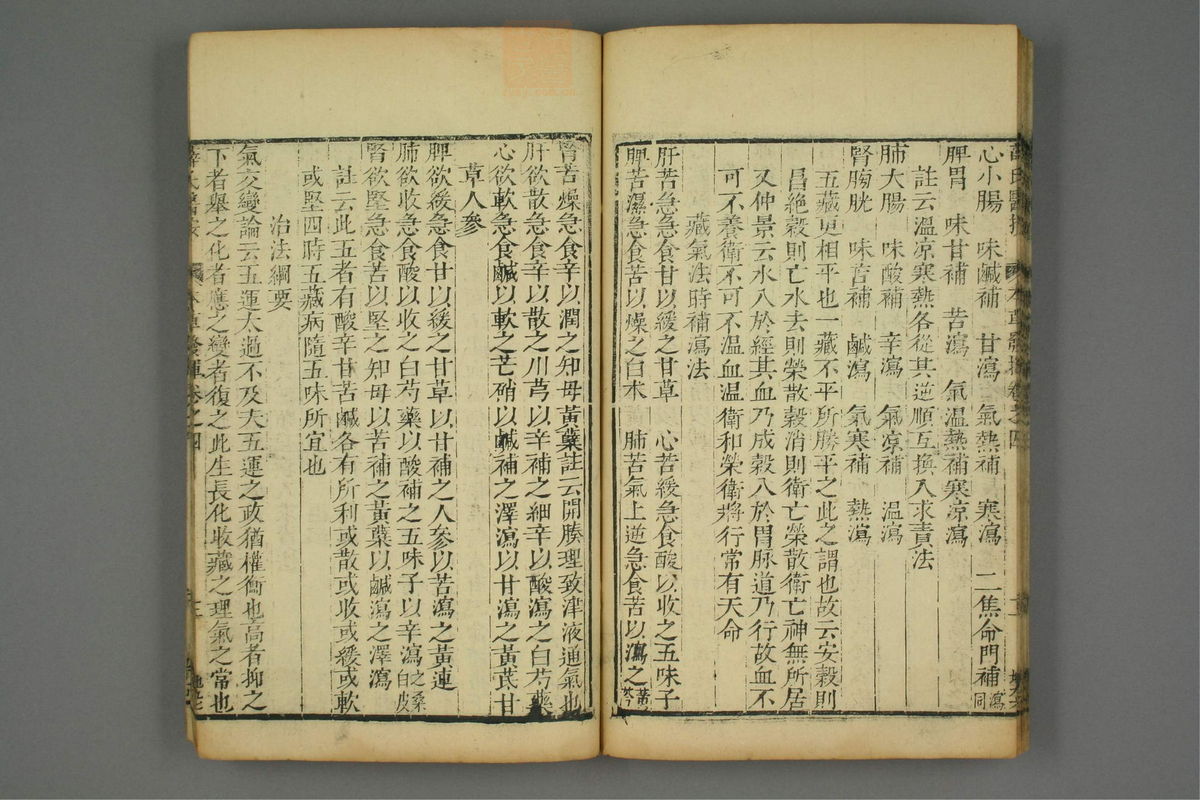 心小腸　味鹹補　甘瀉　氣熱補　寒瀉　二焦命門補瀉同
脾胃　味甘補　苦瀉　氣温熱補寒凉瀉
註云温凉寒熱各從其逆順互換入求責法
肺大腸　味酸補　辛瀉　氣凉補　温瀉
腎膀胱　味苦補　鹹瀉　氣寒補　熱瀉
五藏更相平也一藏不平所勝平之此之謂也故云安穀則
昌絶穀則亡水去則榮散穀消則衛亡榮散衛亡神無所居
又仲景云水入於經其血乃成穀入於胃脉道乃行故血不
可不養衛不可不温血温衛和榮衛將行常有天命
藏氣法時補瀉法
肝苦急急食甘以緩之甘草　心苦緩急食酸以收之五味子
脾苦濕急食苦以燥之白术　肺苦氣上逆急食苦以瀉之黃芩
腎苦燥急食辛以潤之知母黃蘗註云開腠理致津液通氣也
肝欲散急食辛以散之川芎以辛補之細辛以酸瀉之白芍藥
心欲軟急食鹹以軟之芒硝以鹹補之澤瀉以甘瀉之黃芪甘
草人參
脾欲緩急食甘以緩之甘草以甘補之人參以苦瀉之黃連
肺欲收急食酸以收之白芍藥以酸補之五味子以辛瀉之桑白皮
腎欲堅急食苦以堅之知母以苦補之黃蘗以鹹瀉之澤瀉
註云此五者有酸辛甘苦鹹各有所利或散或收或緩或軟
或堅四時五藏病隨五味所宜也
治法綱要
氣交變論云五運太過不及夫五運之政猶權衡也高者抑之
下者舉之化者應之變者復之此生長化收藏之理氣之常也